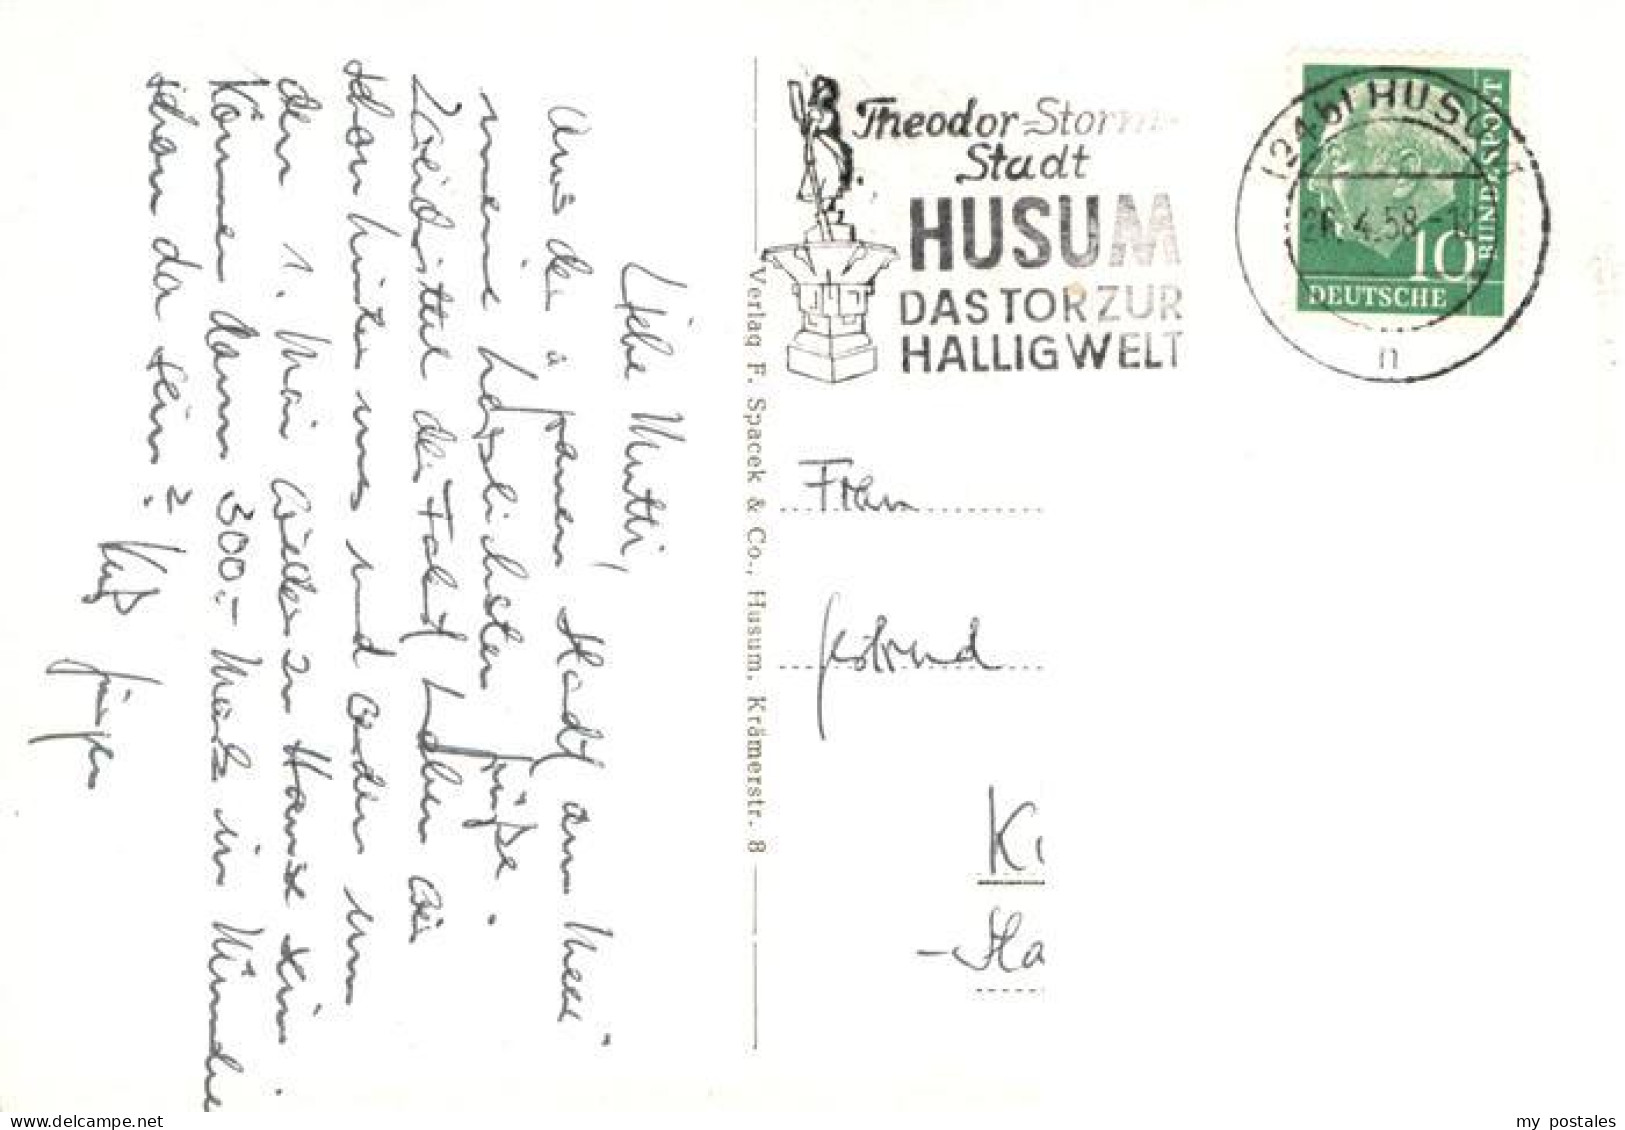 Liebe Mutti,
Aus der „grauen Stadt am Meer"
meine herzlichsten Grüße.
Zweidrittel der Fahrt haben wir
schon hinter uns und werden um
den 1. Mai wieder zu Hause sein.
Können dann 300.- Mark in München
schon da sein? Kuß Jürgen
Verlag F. Spacek & Co., Husum, Krämerstr. 8
Theodor-Storm-
Stadt
HUSUM
DAS TOR ZUR
HALLIGWELT
(24b) HUSUM
26.4.58-12
n
DEUTSCHE
BUNDESPOST
10
Frau
Ki
-Ha
my postales